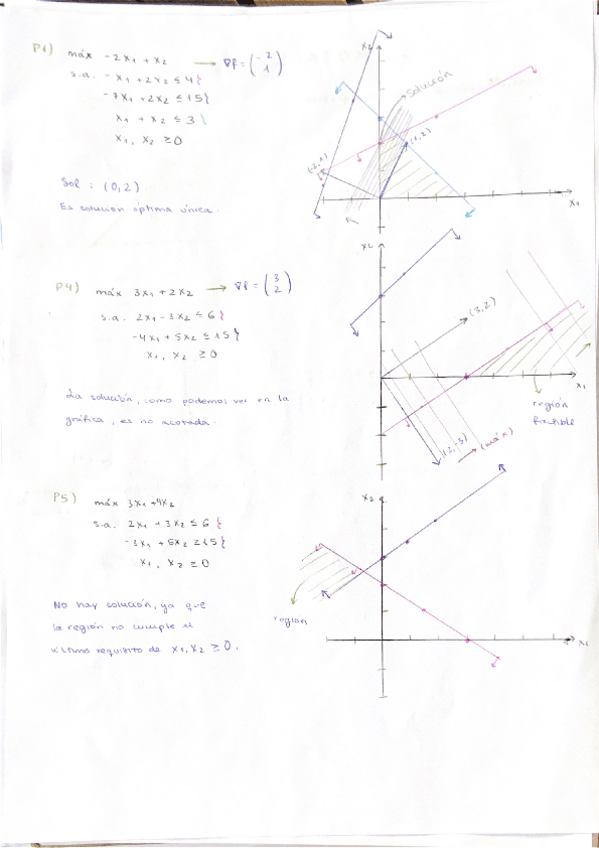 P1) máx -2x₁ + x₂ → ∇f = (-2 1)
s.a. -x₁ + 2x₂ ≤ 4 }
-7x₁ + 2x₂ ≤ 15 }
x₁ + x₂ ≤ 3 }
x₁, x₂ ≥ 0
Sol : (0,2)
Es solución óptima única.
x₂
solución
(-2,1)
(1,2)
x₁
P4) máx 3x₁ + 2x₂ → ∇f = (3 2)
s.a. 2x₁ - 3x₂ ≤ 6 }
-4x₁ + 5x₂ ≤ 15 }
x₁, x₂ ≥ 0
La solución, como podemos ver en la
gráfica, es no acotada.
x₂
(3,2)
x₁
región
factible
(2,-3)
(máx)
P5) máx 3x₁ + 4x₂
s.a. 2x₁ + 3x₂ ≤ 6 }
-3x₁ + 5x₂ ≥ 15 }
x₁, x₂ ≥ 0
No hay solución, ya que
la región no cumple el
último requisito de x₁, x₂ ≥ 0.
x₂
región
x₁